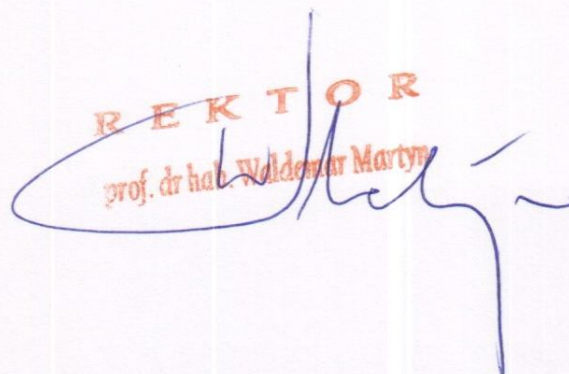 REKTOR
prof. dr hab. Waldemar Martyn